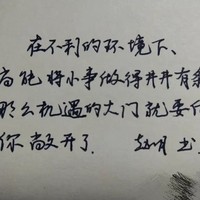 在不利的环境下、
尚能将小事做得井井有条
那么机遇的大门就要向
你敞开了. 赵明 书